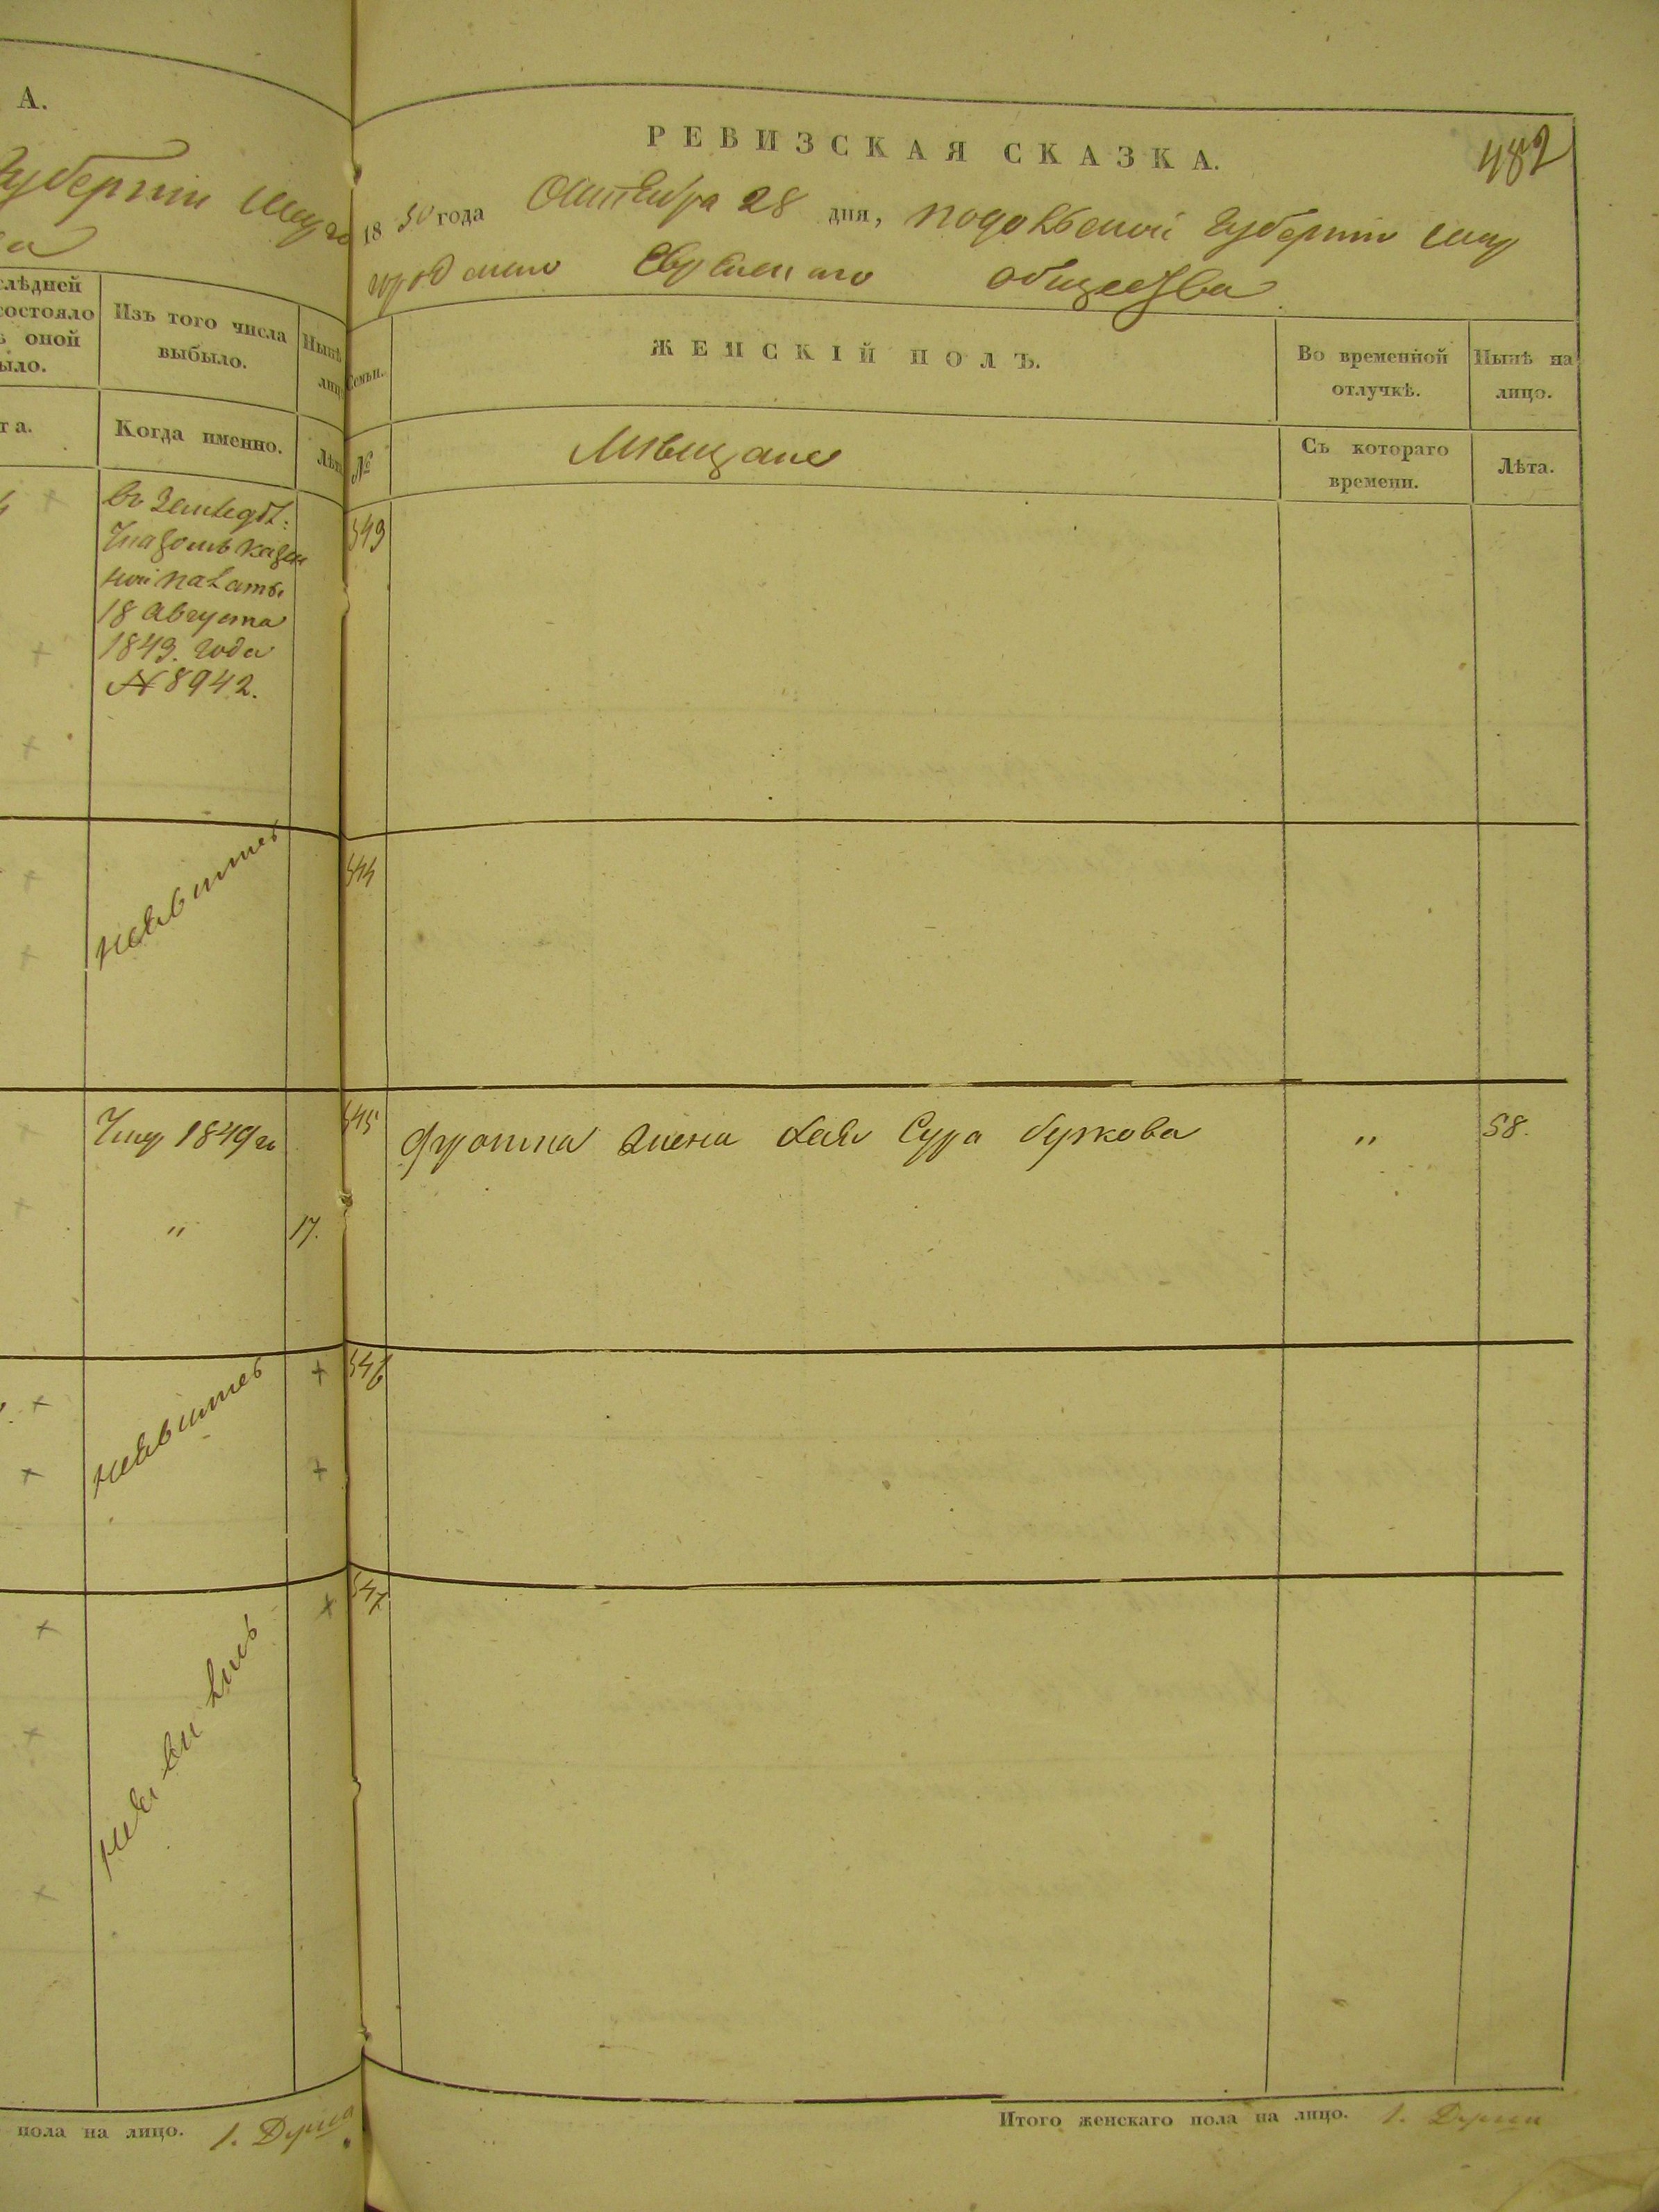 А.
Губерніи
слѣдней
состояло
оной
ыло.
Изъ того числа
выбыло.
Нынѣ
лиц
та.
Когда именно.
Лѣт
въ Земледѣл:
казен
ной палаты
18 Августа
1849. года
№ 8942.
неявились
1849 го
"
17.
неявились
неявились
пола на лицо. 1. Душа
РЕВИЗСКАЯ СКАЗКА.
482
18 50 года Октября 28 дня, Подольской Губерніи
Еврейскаго общества
Семьи.
ЖЕНСКІЙ ПОЛЪ.
Во временной
отлучкѣ.
Нынѣ на
лицо.
№
Мѣщане
Съ котораго
времени.
Лѣта.
543
544
545
жена Хая Сура Беркова
"
58.
546
547
Итого женскаго пола на лицо. 1. Душа